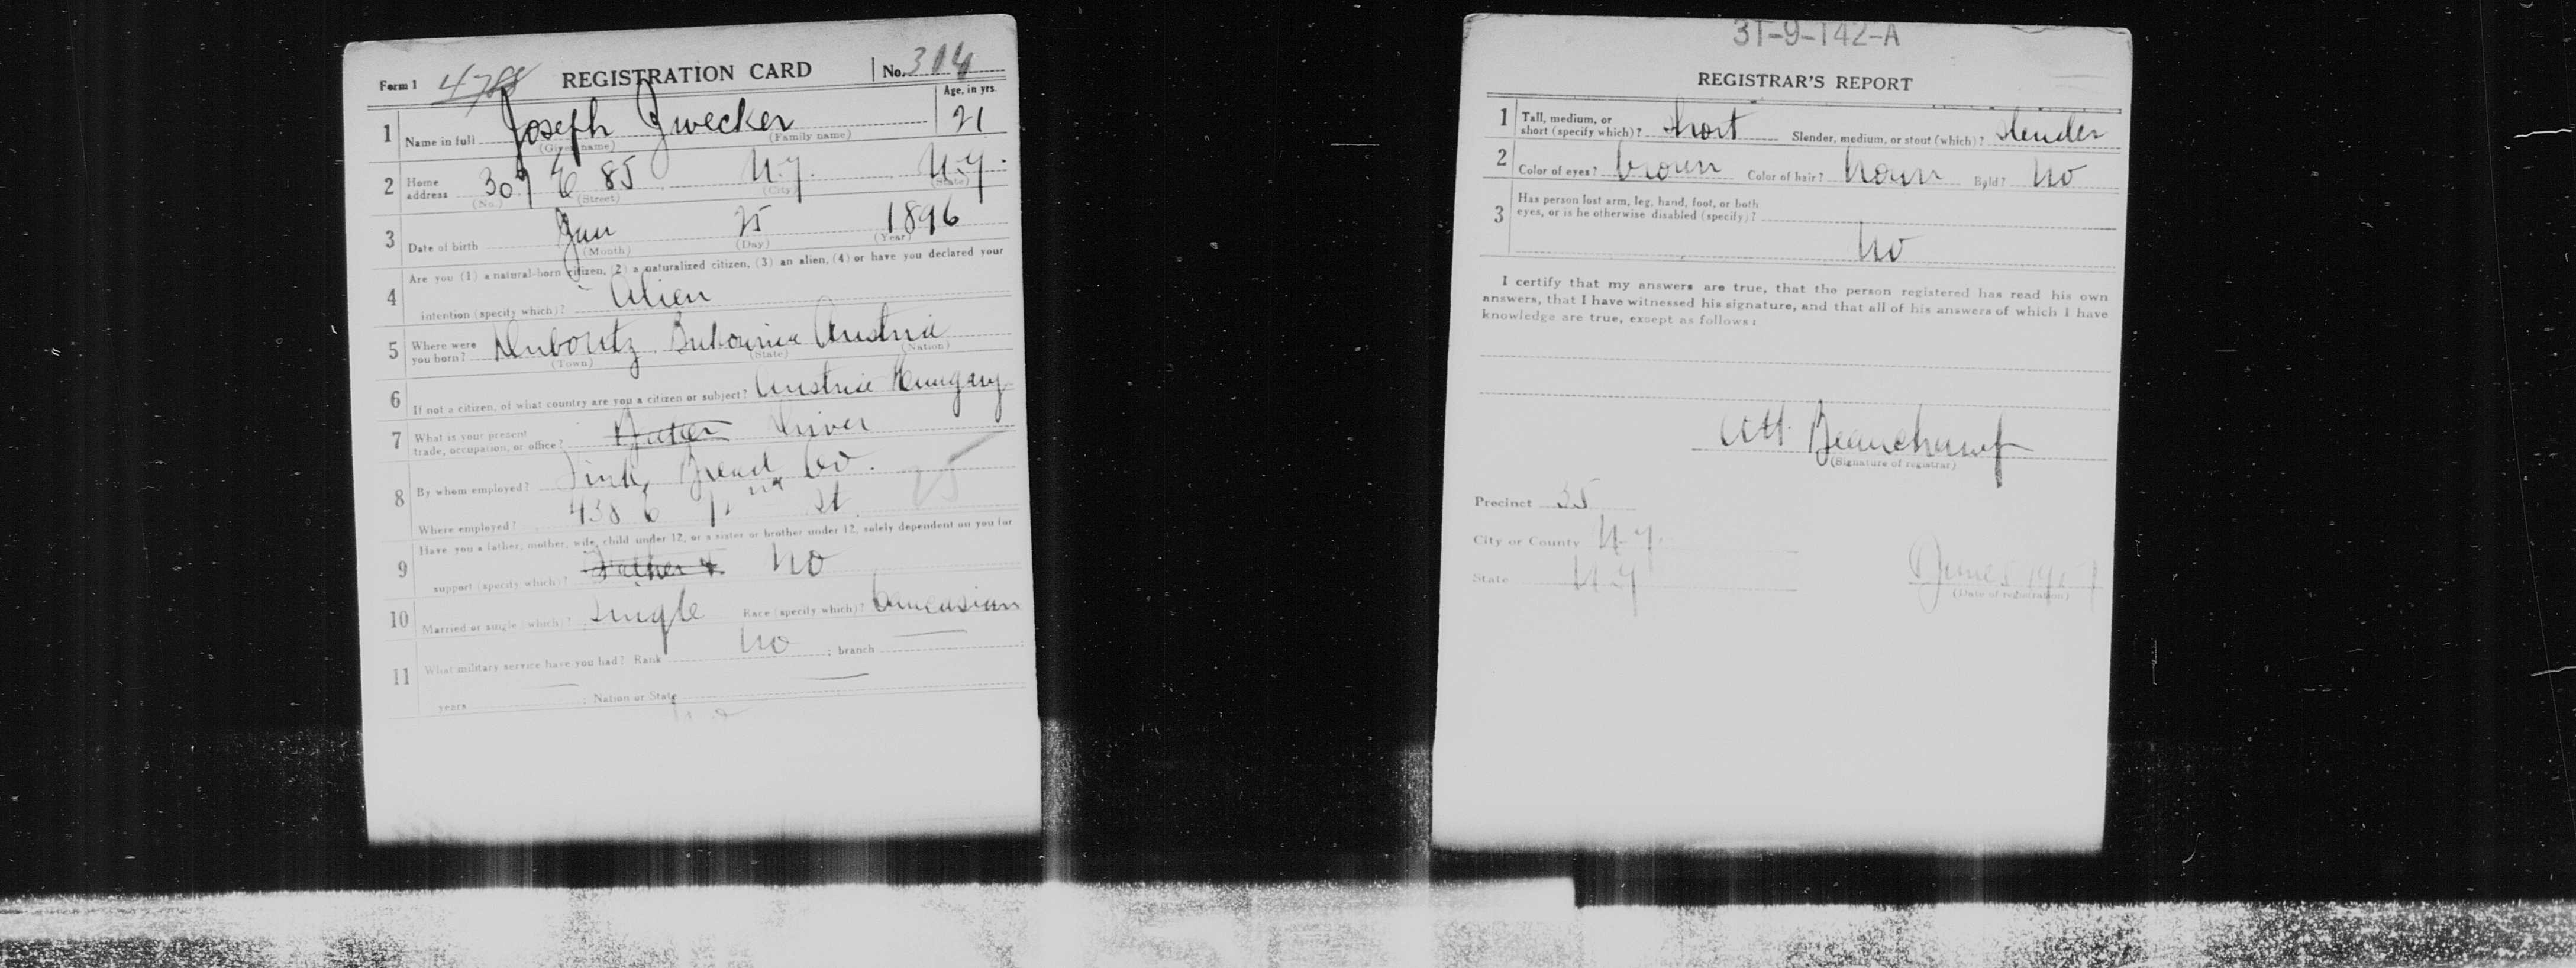 Form 1 4788 REGISTRATION CARD No. 314
Age, in yrs.
1 Name in full Joseph Zwecker 21
(Given name) (Family name)
2 Home address 309 E 85 N.Y. N.Y.
(No.) (Street) (City) (State)
3 Date of birth Jan 25 1896
(Month) (Day) (Year)
4 Are you (1) a natural-born citizen, (2) a naturalized citizen, (3) an alien, (4) or have you declared your
intention (specify which)? Alien
5 Where were you born? Austria
(Town) (State) (Nation)
6 If not a citizen, of what country are you a citizen or subject? Austria Hungary
7 What is your present trade, occupation, or office? Driver
8 By whom employed? Bread Co.
Where employed? 438 E St. 25
9 Have you a father, mother, wife, child under 12, or a sister or brother under 12, solely dependent on you for
support (specify which)? Father & No
10 Married or single (which)? Single Race (specify which)? Caucasian
11 What military service have you had? Rank No ; branch
years ; Nation or State
No
31-9-142-A
REGISTRAR'S REPORT
1 Tall, medium, or short (specify which)? Short Slender, medium, or stout (which)? Slender
2 Color of eyes? Brown Color of hair? Brown Bald? No
3 Has person lost arm, leg, hand, foot, or both
eyes, or is he otherwise disabled (specify)?
No
I certify that my answers are true, that the person registered has read his own
answers, that I have witnessed his signature, and that all of his answers of which I have
knowledge are true, except as follows:
Beauchamp
(Signature of registrar)
Precinct 35
City or County N.Y.
State N.Y. June 5 1917
(Date of registration)